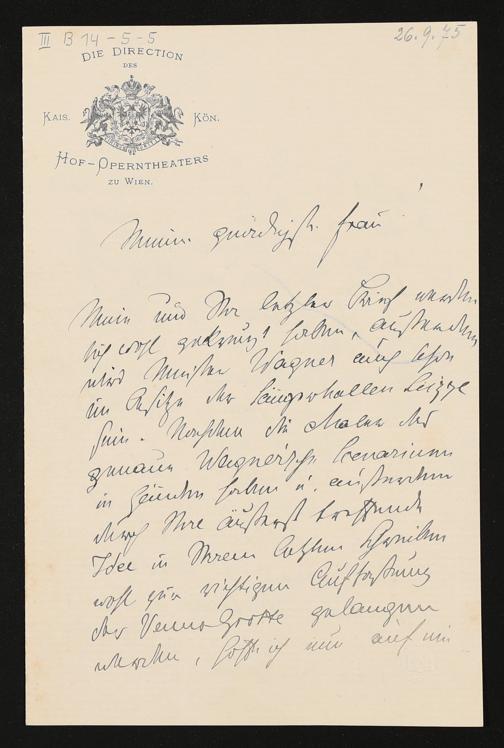 III B 14-5-5
26.9.75
DIE DIRECTION
DES
KAIS. KÖN.
HOF-OPERNTHEATERS
ZU WIEN.
Meine gnädigste Frau
Mein und Ihr letzter Brief werden
sich wohl gekreuzt haben, außerdem
wird Meister Wagner auch schon
im Besitze der Sängerhallen Skizze
sein. Nachdem die Maler das
genaue Wagner'sche Scenarium
in Händen haben u. außerdem
durch Ihre äußerst treffende
Idee in Ihrem letzten Schreiben
wohl zur richtigen Auffassung
der Venus Grotte gelangen
werden, ich nur auf